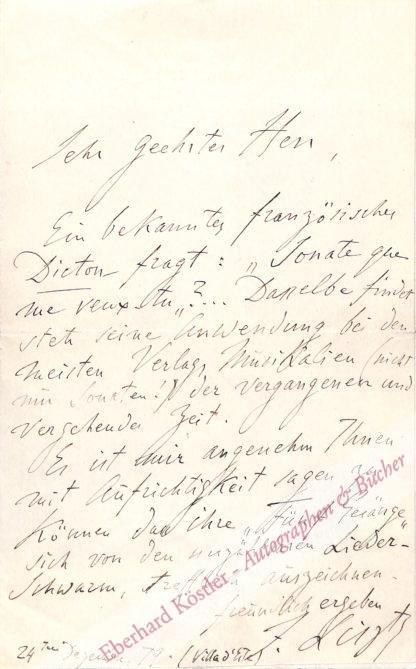 Sehr geehrter Herr,
Ein bekanntes französisches
Dicton fragt: „Sonate que
me veux-tu„?... Dasselbe findet
stets seine Anwendung bei den
meisten Verlags Musikalien (nicht
nur Sonaten!) der vergangenen und
vergehenden Zeit.
Es ist mir angenehm Ihnen
mit Aufrichtigkeit sagen zu
können das ihre „Fünf Gesänge„
sich von den unzähligen Lieder-
Schwarm, trefflich auszeichnen.
freundlich ergeben
F. Liszt
24ten Dezember, 79. (Villa d'Este)
Eberhard Köstler - Autographen & Bücher